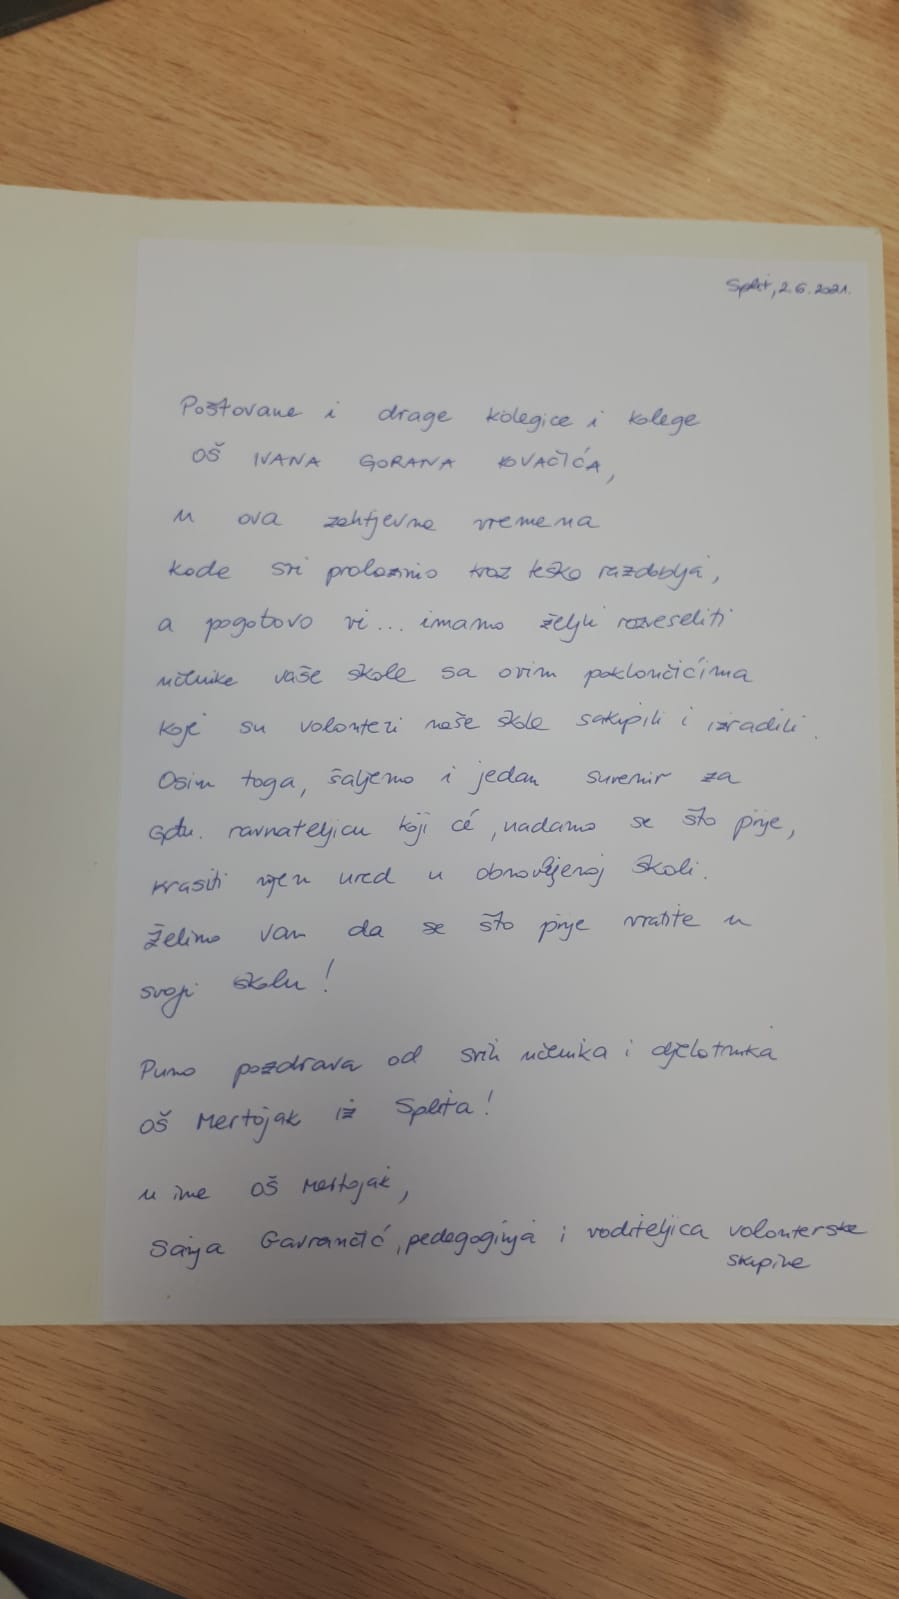 Split, 2.6.2021.
Poštovane i drage kolegice i kolege
OŠ IVANA GORANA KOVAČIĆA,
u ova zahtjevna vremena
kada svi prolazimo kroz teško razdoblje,
a pogotovo vi... imamo želju razveseliti
učenike vaše škole sa ovim poklončićima
koje su volonteri naše škole sakupili i izradili.
Osim toga, šaljemo i jedan suvenir za
gđu. ravnateljicu koji će, nadamo se što prije,
krasiti njen ured u obnovljenoj školi.
Želimo vam da se što prije vratite u
svoju školu!
Puno pozdrava od svih učenika i djelatnika
OŠ Mertojak iz Splita!
u ime OŠ Mertojak,
Sanja Gavrančić, pedagoginja i voditeljica volonterske
skupine